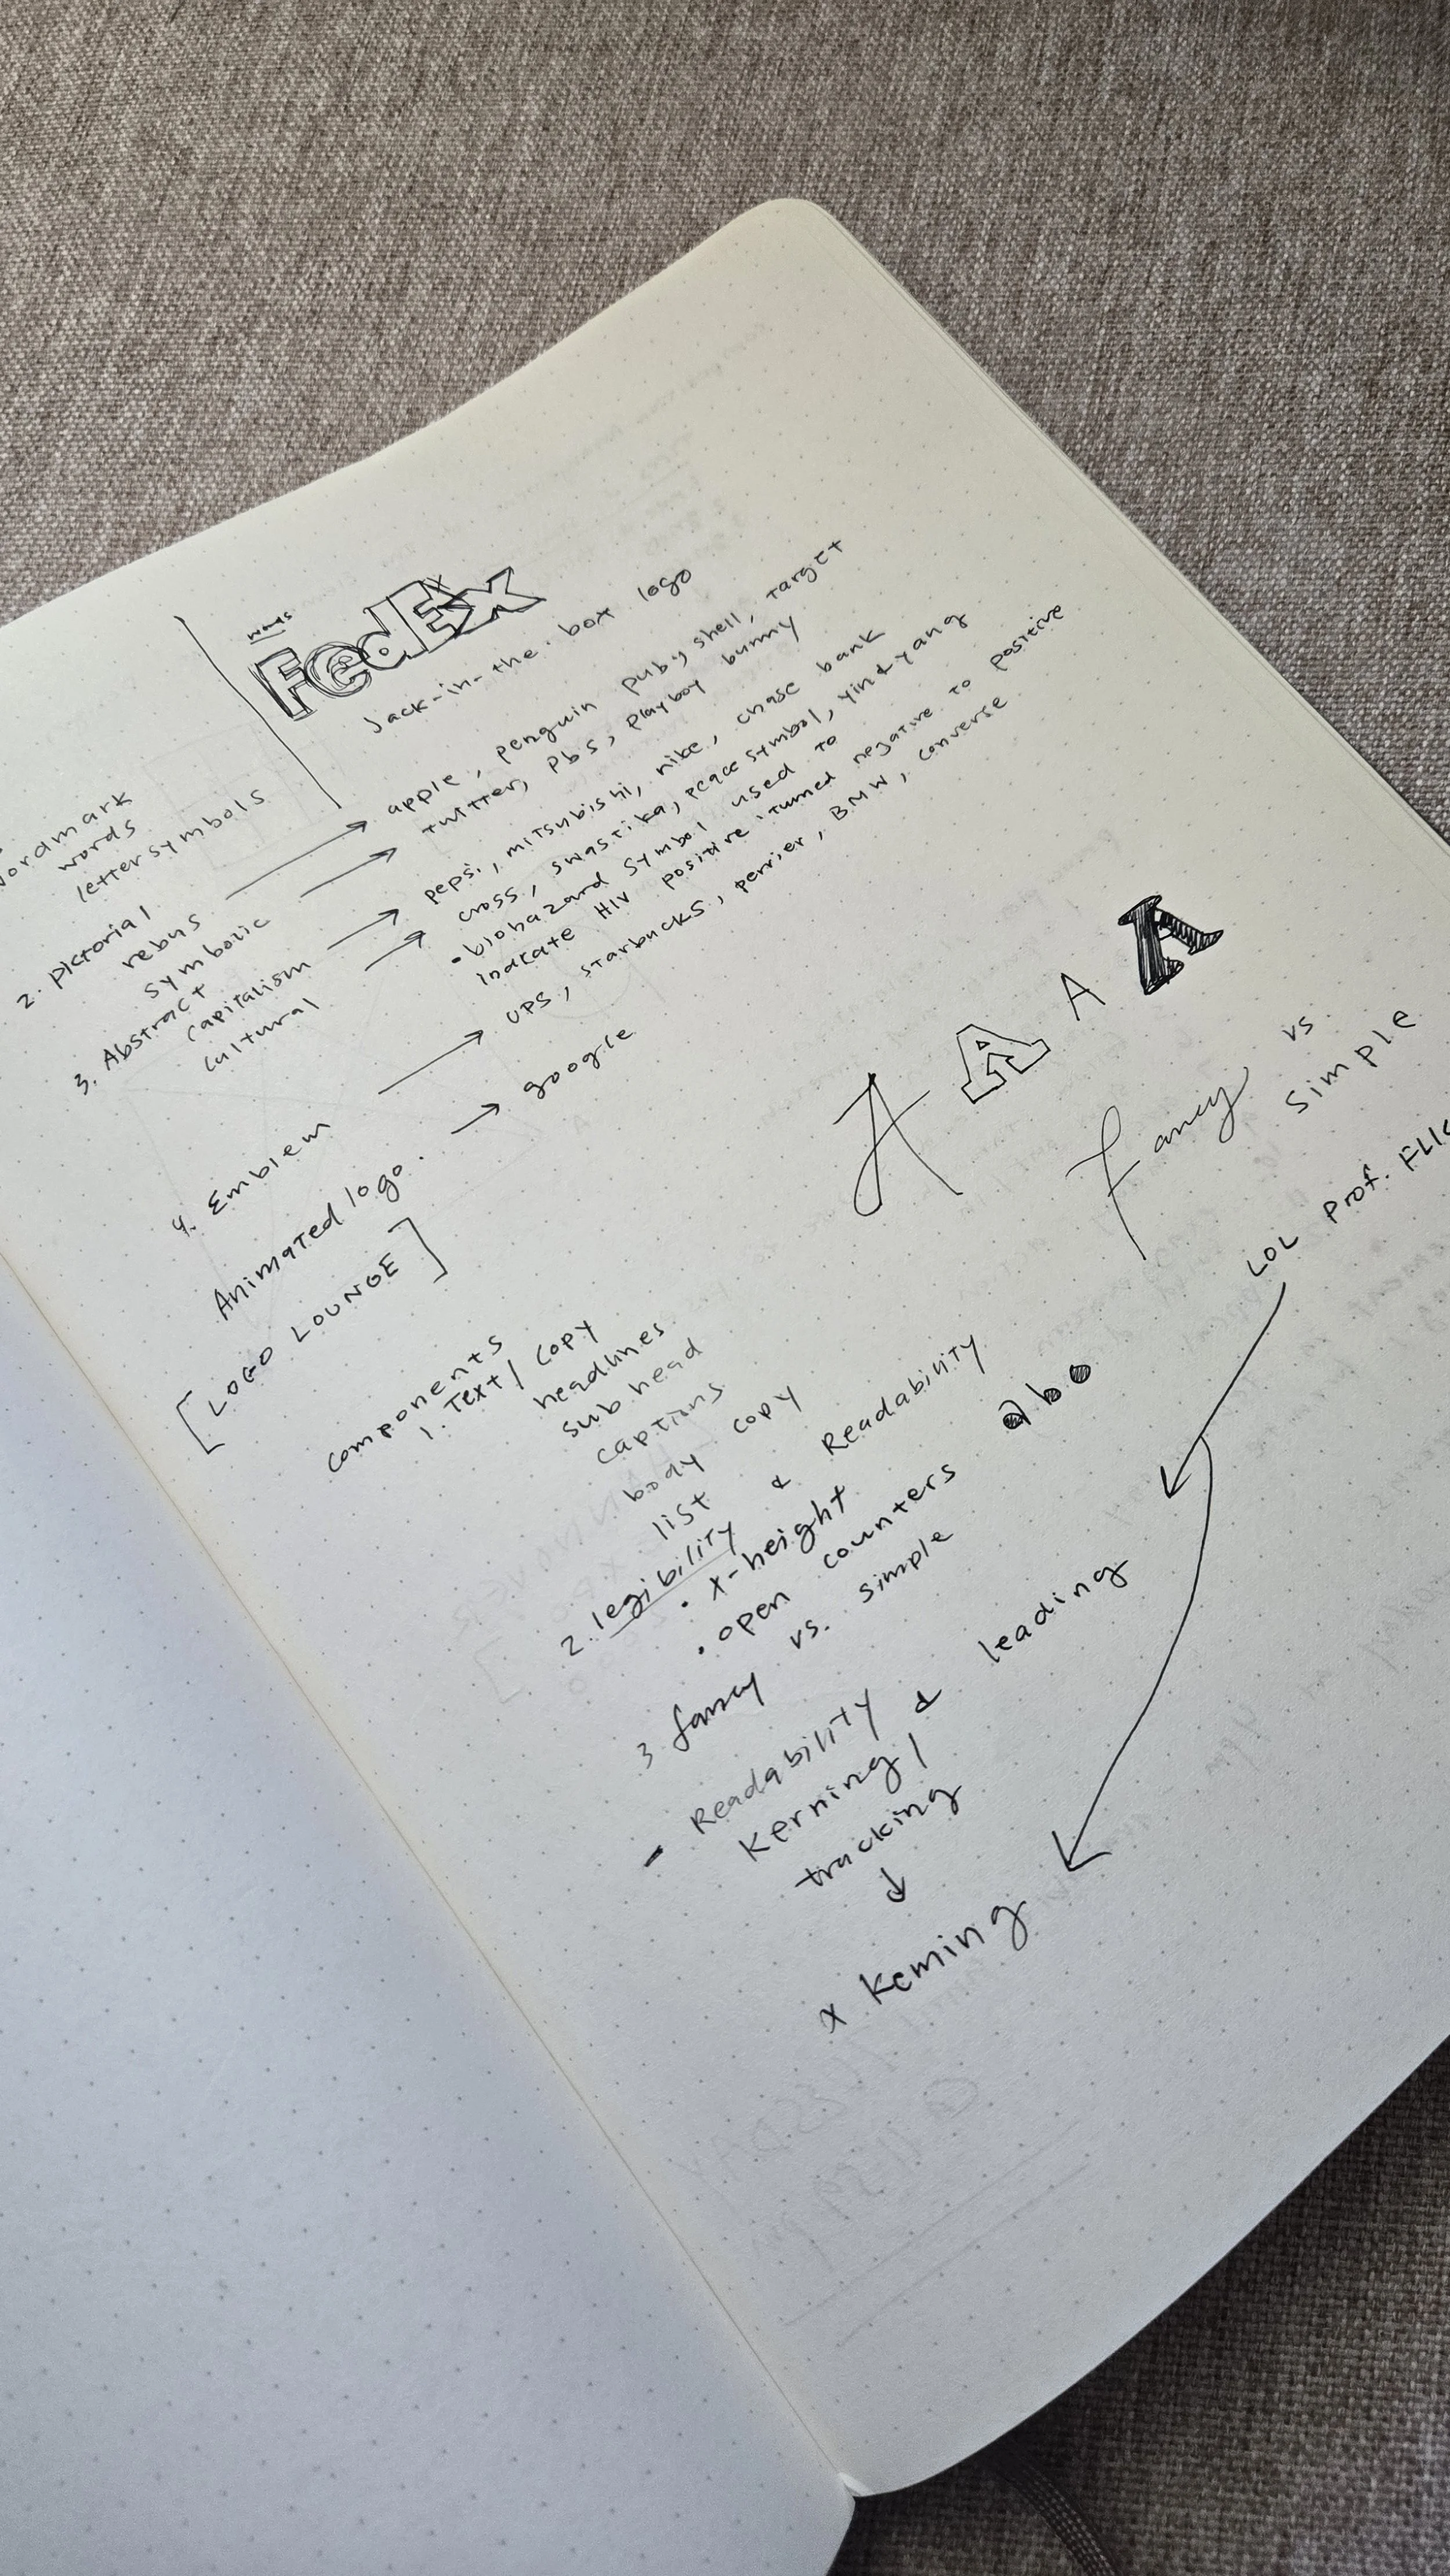 FedEx
Jack-in-the-box logo
wordmark
words
letter symbols
2. pictorial
rebus → apple, penguin pub, shell, target
symbolic → twitter, pbs, playboy bunny
3. Abstract
capitalism → pepsi, mitsubishi, nike, chase bank
cultural → cross, swastika, peace symbol, yin & yang
• biohazard symbol used to
indicate HIV positive; turned negative to positive
4. Emblem → UPS, starbucks, perrier, BMW, converse
Animated logo. → google
[LOGO LOUNGE]
A A A A
fancy vs.
simple
components
1. Text / copy
headlines
sub head
captions
body copy
list
2. legibility & Readability
• x-height
• open counters abo
3 fancy vs. simple
LOL Prof.
- Readability & leading
kerning /
tracking
↓
x keming